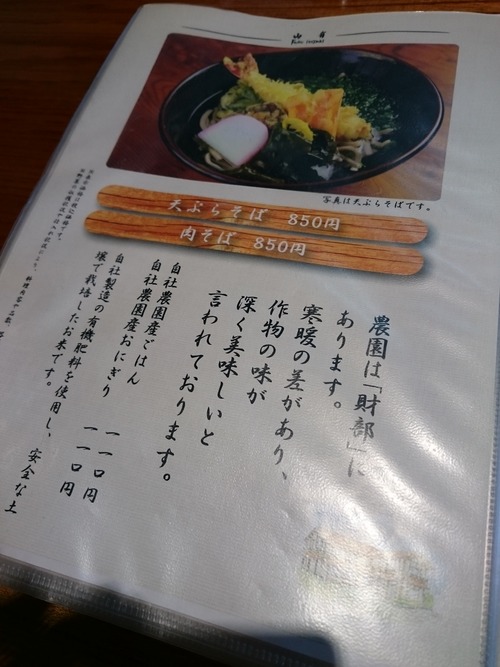 天ぷらそば 850円
肉そば 850円
写真は天ぷらそばです。
農園は「財部」に
あります。
寒暖の差があり、
作物の味が
深く美味しいと
言われております。
自社農園産ごはん 一一〇円
自社農園産おにぎり 一一〇円
自社製造の有機肥料を使用し、安全な土
壌で栽培したお米です。